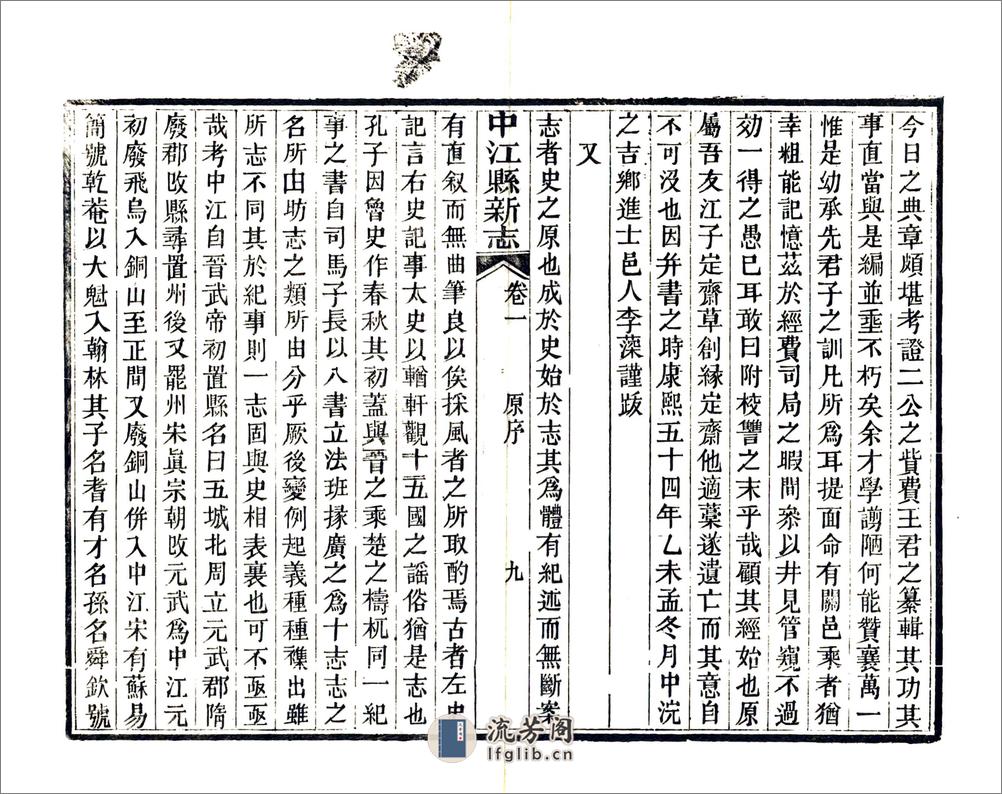 今日之典章頗堪考證二公之貲費王君之纂輯其功其
事直當與是編並垂不朽矣余才學譾陋何能贊襄萬一
惟是幼承先君子之訓凡所爲耳提面命有關邑乘者猶
幸粗能記憶茲於經費司局之暇間叅以井見管窺不過
効一得之愚已耳敢曰附校讐之末乎哉顧其經始也原
屬吾友江子定齋草創緣定齋他適藁遂遺亡而其意自
不可没也因幷書之時康熙五十四年乙未孟冬月中浣
之吉鄉進士邑人李藻謹跋
又
志者史之原也成於史始於志其爲體有紀述而無斷案
中江縣新志 卷一 原序 九
有直叙而無曲筆良以俟採風者之所取酌焉古者左史
記言右史記事太史以輶軒觀十五國之謡俗猶是志也
孔子因魯史作春秋其初蓋與晉之乘楚之檮杌同一紀
事之書自司馬子長以八書立法班掾廣之爲十志志之
名所由昉志之類所由分乎厥後變例起義種種襍出雖
所志不同其於紀事則一志固與史相表裏也可不亟亟
哉考中江自晉武帝初置縣名曰五城北周立元武郡隋
廢郡改縣尋置州後又罷州宋眞宗朝改元武爲中江元
初廢飛烏入銅山至正間又廢銅山併入中江宋有蘇易
簡號乾菴以大魁入翰林其子名耆有才名孫名舜欽號
流芳閣
lfglib.cn